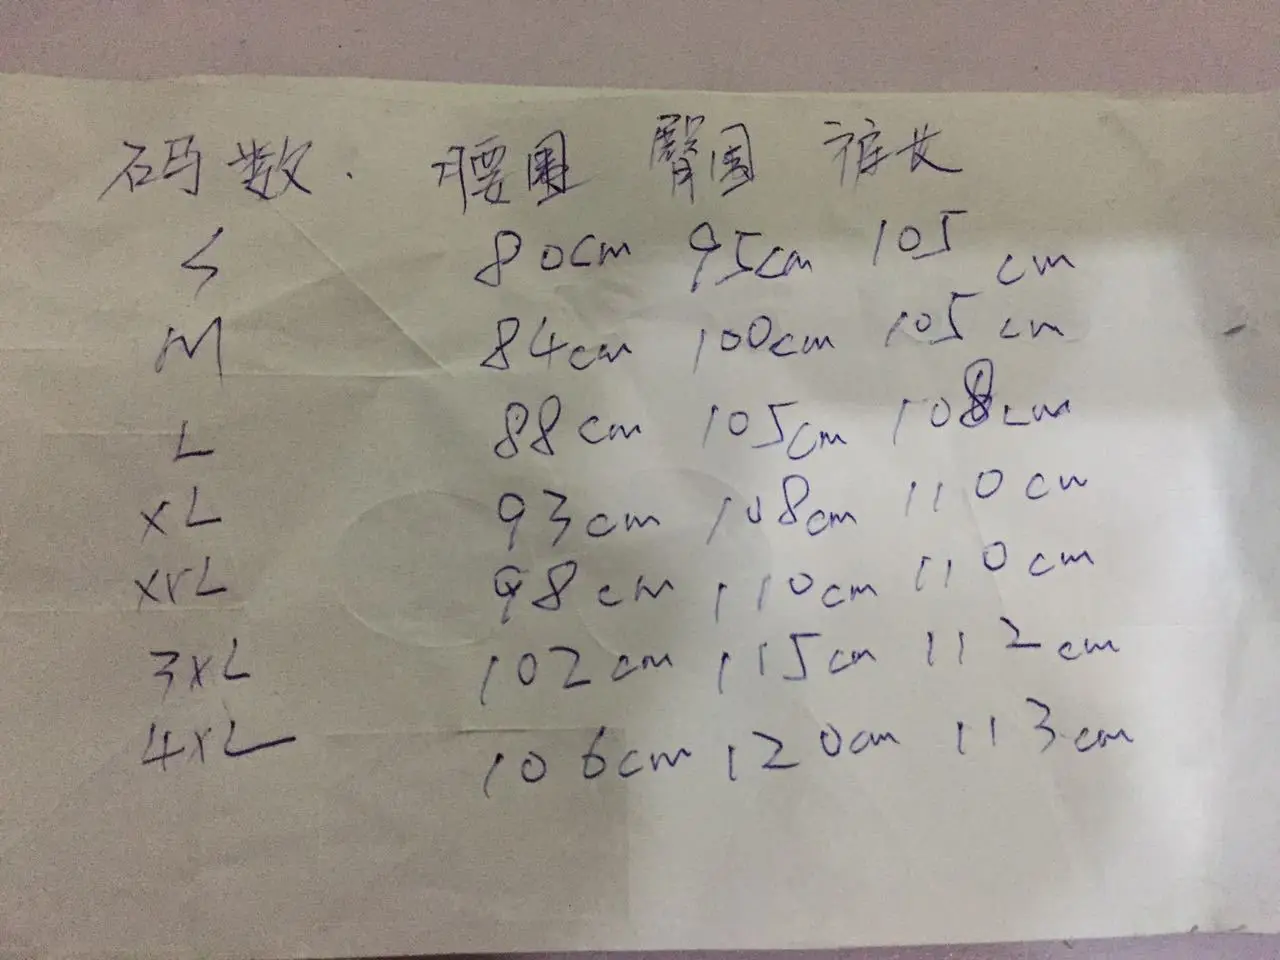 码数. 腰围 臀围 裤长
S 80cm 95cm 105cm
M 84cm 100cm 105cm
L 88cm 105cm 108cm
XL 93cm 108cm 110cm
XXL 98cm 110cm 110cm
3XL 102cm 115cm 112cm
4XL 106cm 120cm 113cm